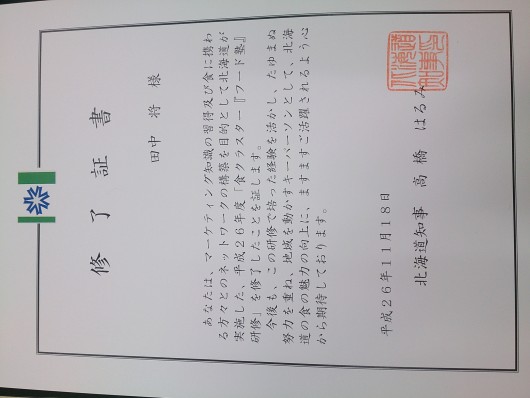 修了証書
田中 将 様
あなたは、マーケティング知識の習得及び食に携わ
る方々とのネットワークの構築を目的として北海道が
実施した、平成２６年度「食クラスター『フード塾』
研修」を修了したことを証します。
今後も、この研修で培った経験を活かし、たゆまぬ
努力を重ね、地域を動かすキーパーソンとして、北海
道の食の魅力の向上に、ますますご活躍されるよう心
から期待しております。
平成２６年１１月１８日
北海道知事 高橋 はるみ